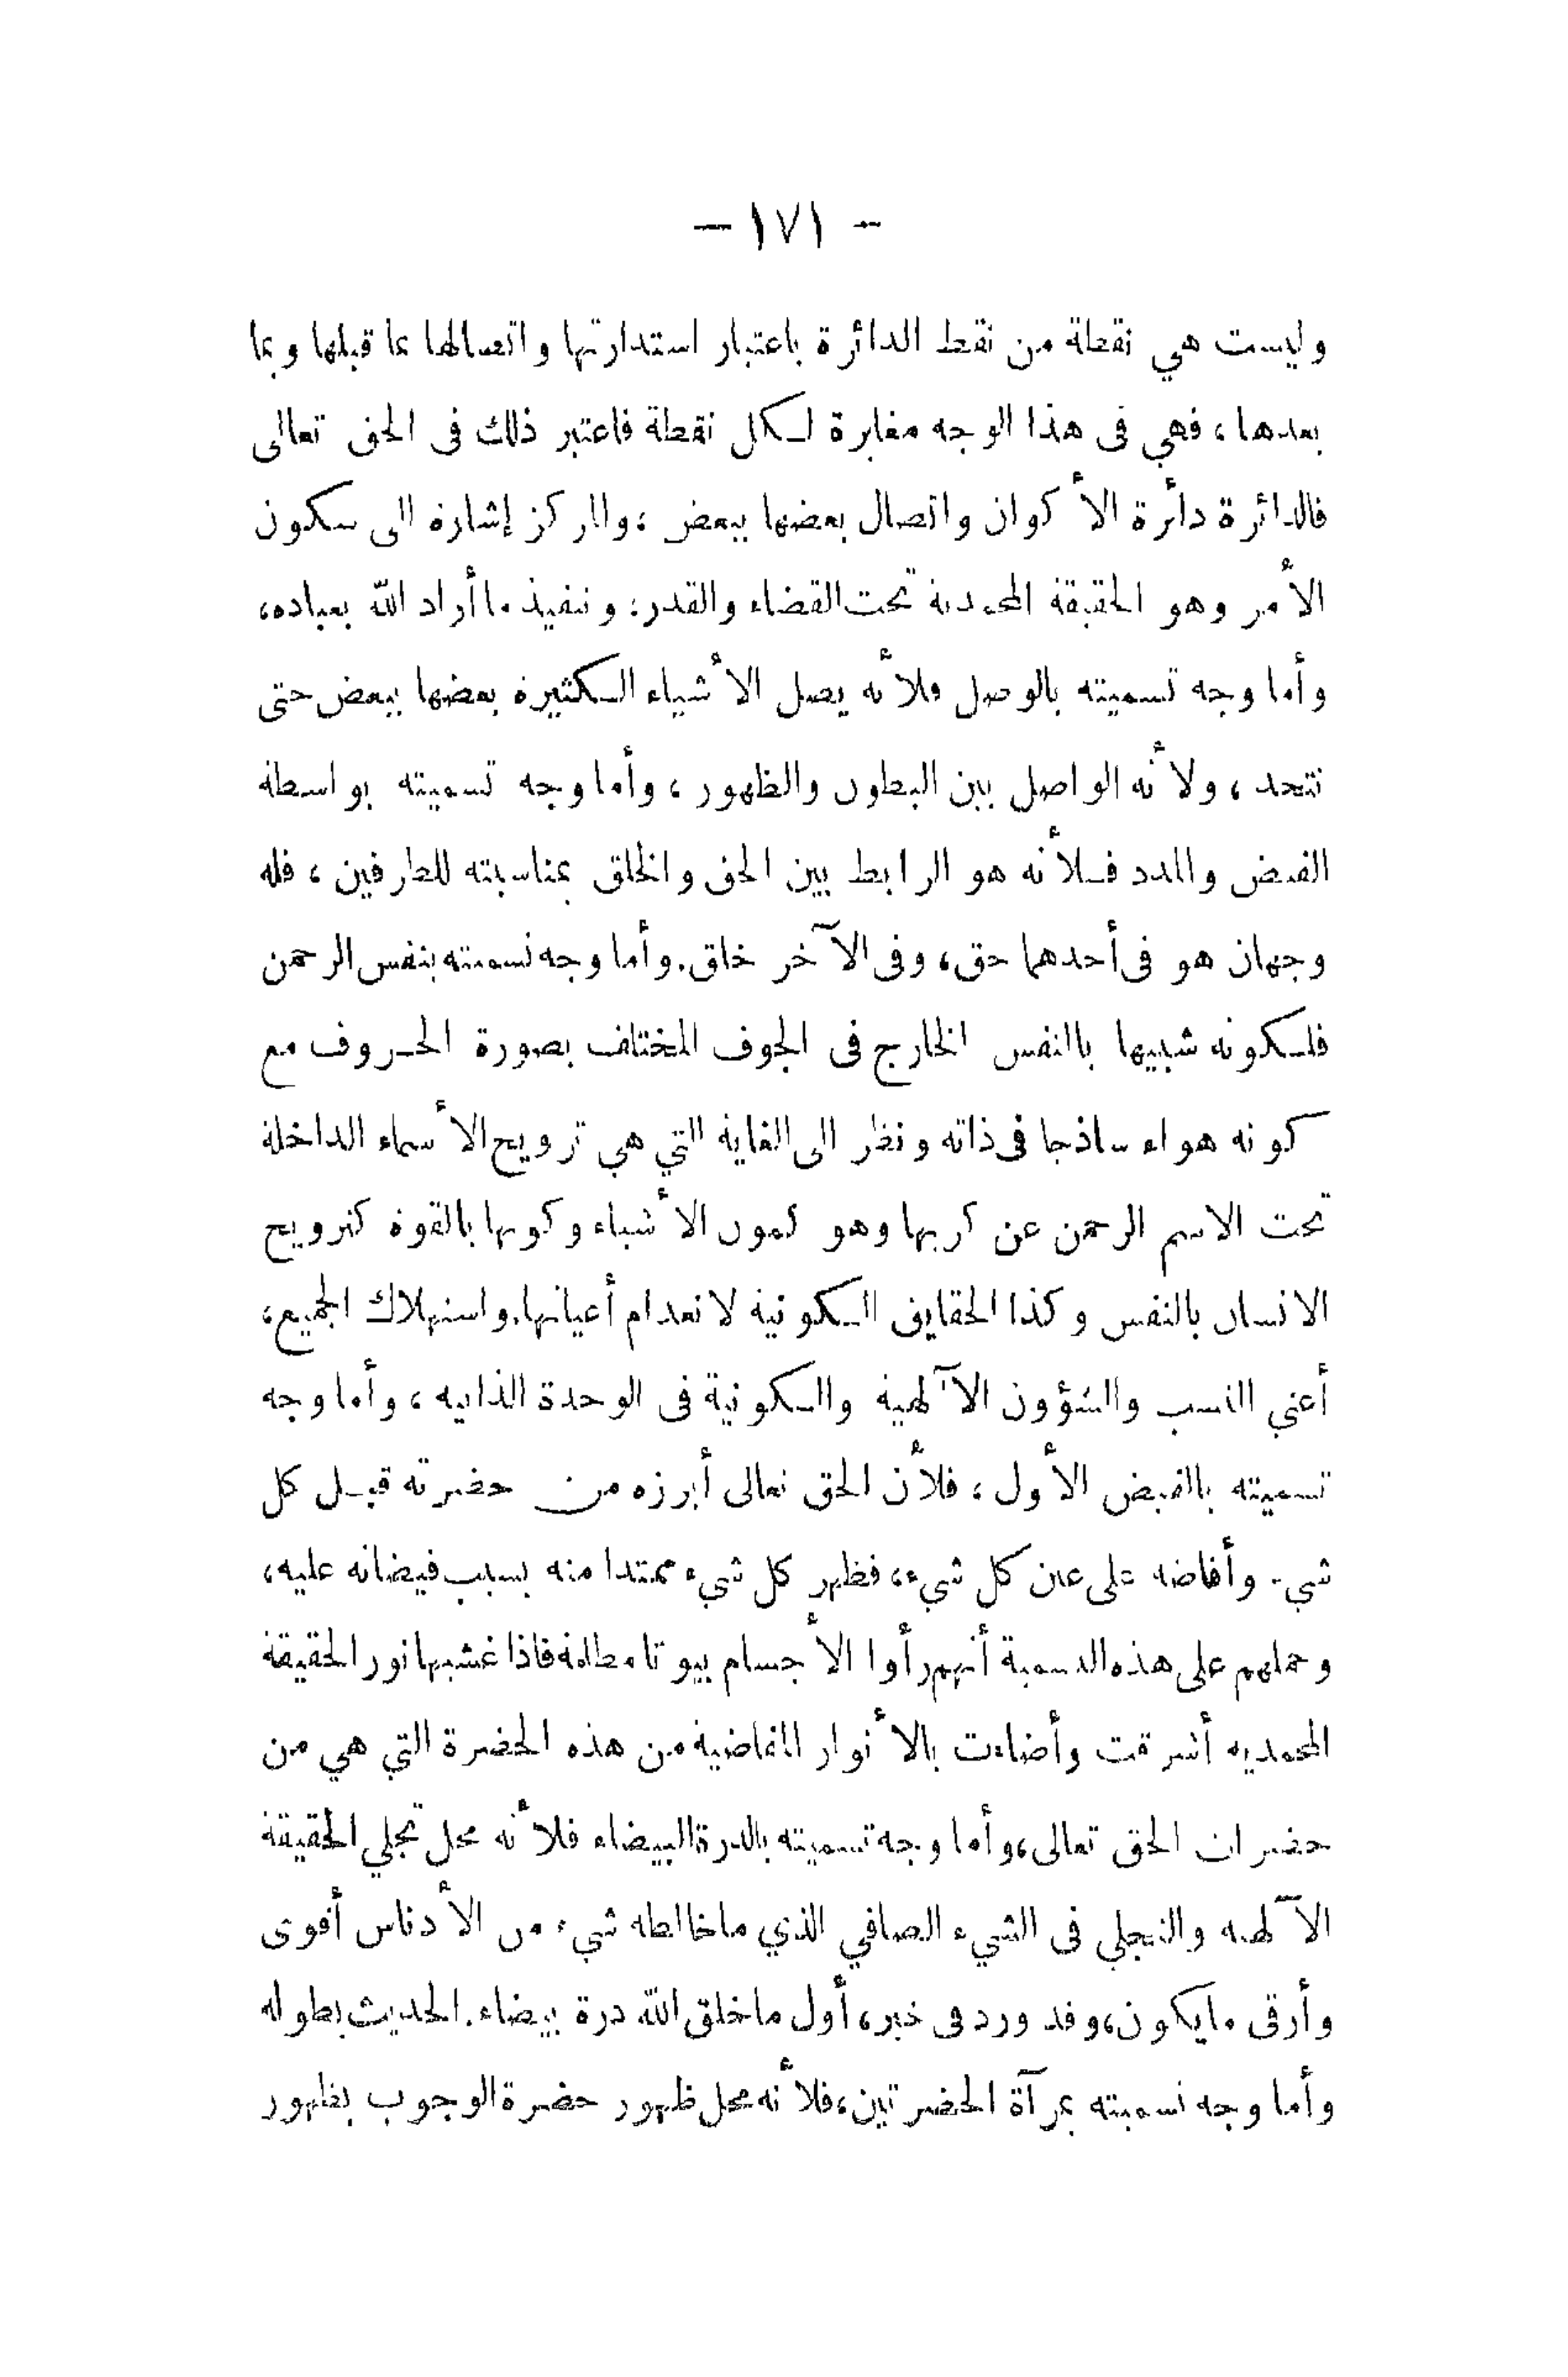 - ١٧١ -
وليست هي نقطة من نقط الدائرة باعتبار استدارتها واتصالها بما قبلها وبما
بعدها، فهي فى هذا الوجه مغايرة لكل نقطة فاعتبر ذلك فى الحق تعالى
فالدائرة دائرة الأكوان واتصال بعضها ببعض، والمركز إشارة الى سكون
الأمر وهو الحقيقة المحمدية تحت القضاء والقدر، وتنفيذ ما أراد الله بعباده،
وأما وجه تسميته بالوصل فلأنه يصل الأشياء الكثيرة بعضها ببعض حتى
تتحد، ولأنه الواصل بين البطون والظهور، وأما وجه تسميته بواسطة
الفيض والمدد فلأنه هو الرابط بين الحق والخلق بمناسبته للطرفين، فله
وجهان هو فى أحدهما حق، وفى الآخر خلق. وأما وجه تسميته بنفس الرحمن
فلكونه شبيها باالنفس الخارج فى الجوف المختلف بصورة الحروف مع
كونه هواء ساذجا فى ذاته ونظر الى الغاية التي هي ترويح الأسماء الداخلة
تحت الاسم الرحمن عن كربها وهو كمون الأشياء وكونها بالقوة كترويح
الانسان بالنفس وكذا الحقايق الكونية لانعدام أعيانها. واستهلاك الجميع،
أعني النسب والشؤون الآلهية والكونية فى الوحدة الذاتيه، وأما وجه
تسميته بالفيض الأول، فلأن الحق تعالى أبرزه من حضرته قبل كل
شيء وأفاضه على عين كل شيء، فظهر كل شيء ممتدا منه بسبب فيضانه عليه،
وحملهم على هذه التسمية أنهم رأوا الأجسام بيوتا مظلمة فاذا غشيها نور الحقيقة
المحمديه أشرقت وأضاءت بالأنوار الفاضية من هذه الحضرة التي هي من
حضرات الحق تعالى، وأما وجه تسميته بالدرة البيضاء فلأنه محل تجلي الحقيقة
الآلهية والتجلي فى الشيء الصافي الذي ماخالطه شيء من الأدناس أقوى
وأرقى مايكون، وقد ورد فى خبر، أول ماخلق الله درة بيضاء. الحديث بطوله
وأما وجه تسميته بمرآة الحضرتين، فلأنه محل ظهور حضرة الوجوب بظهور